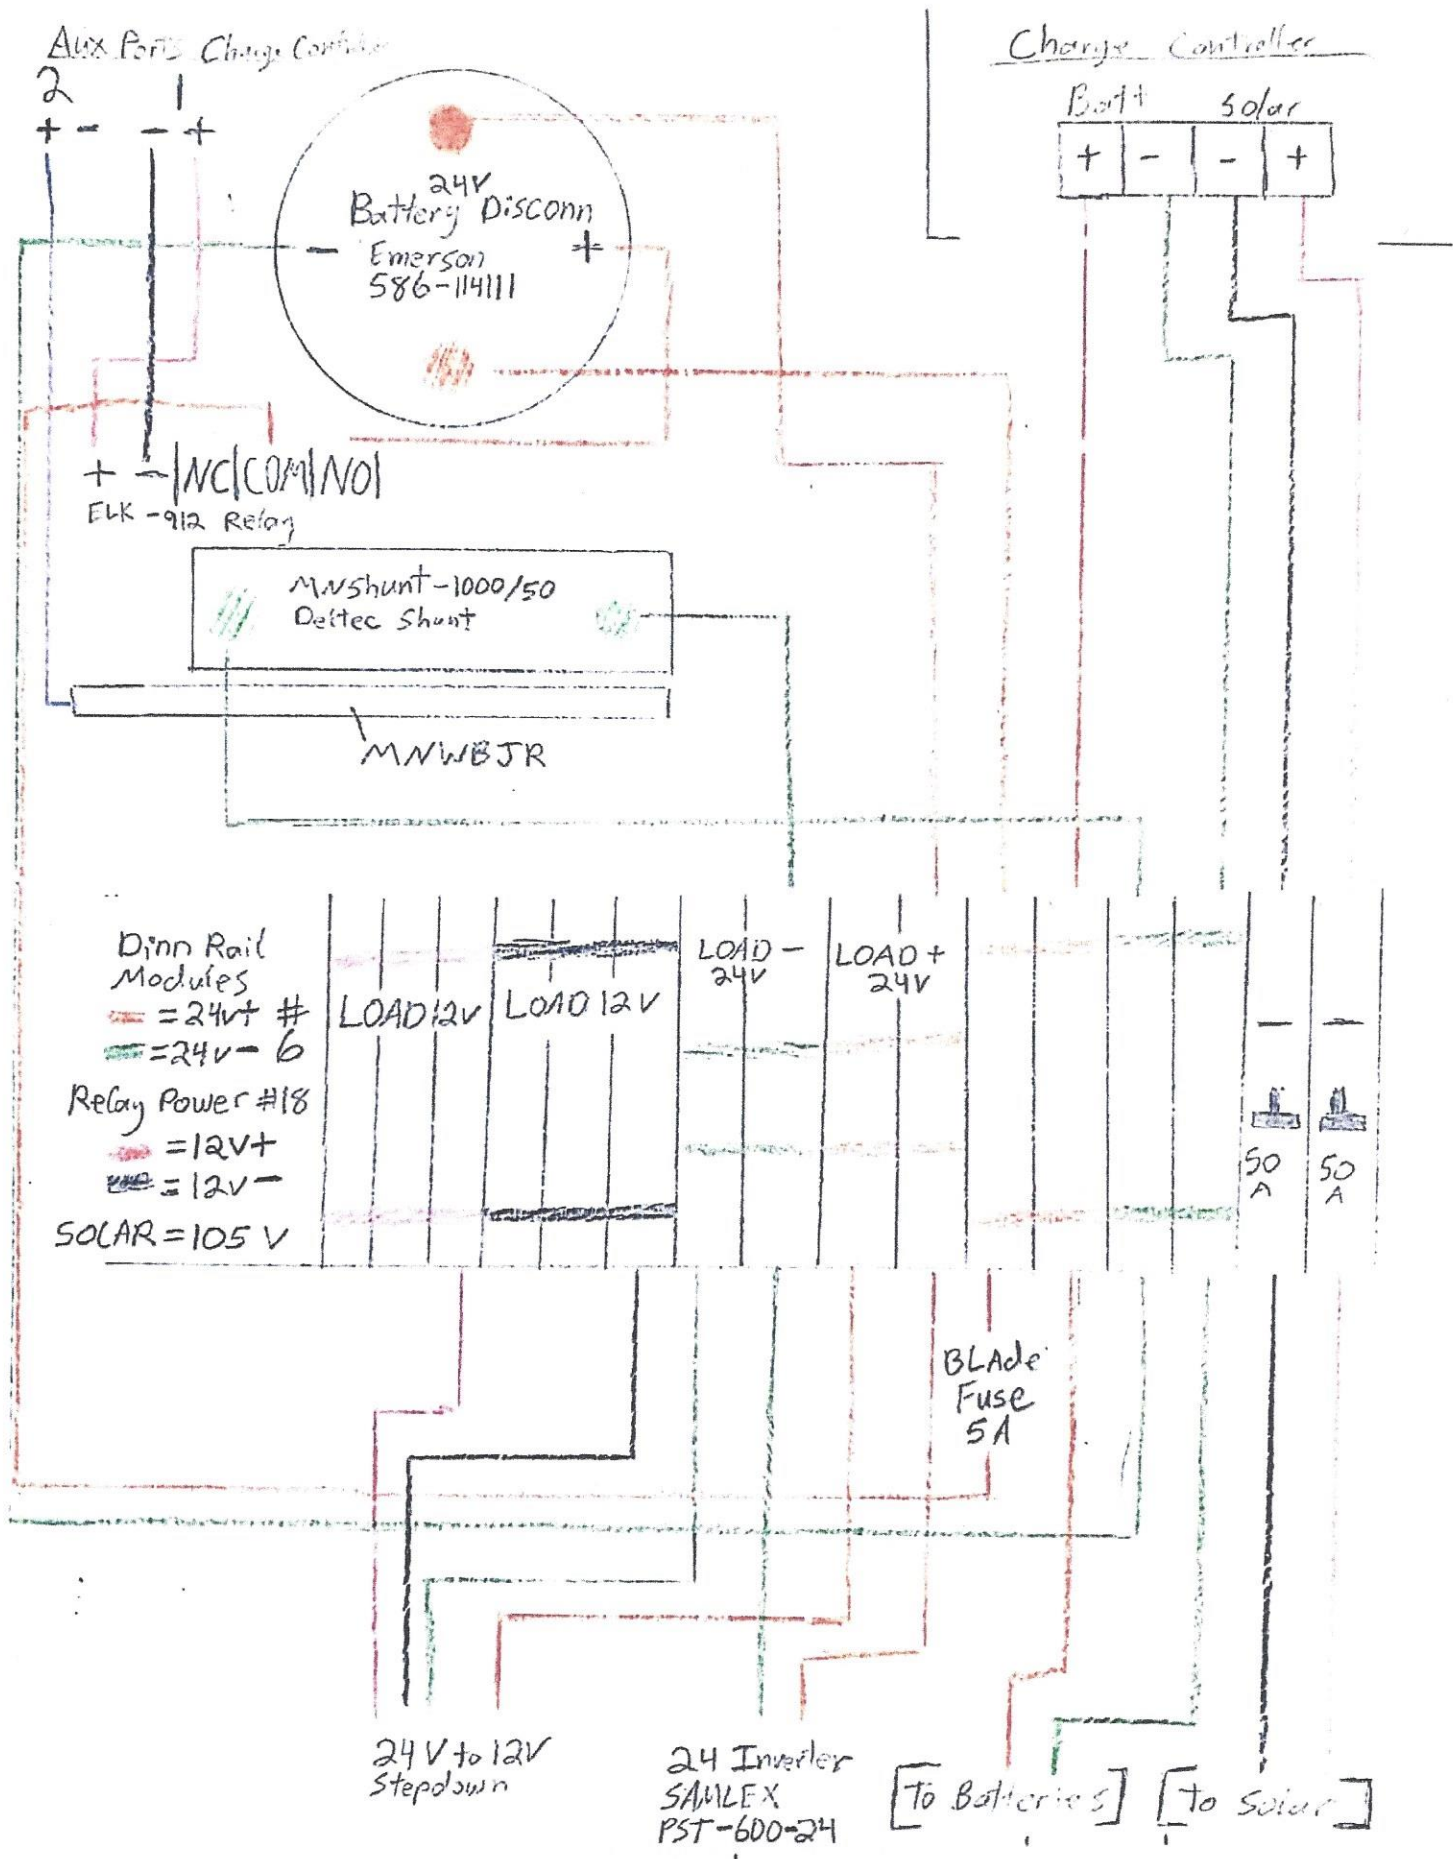 Aux Ports Charge Controller
2 1
+ - - +
Charge Controller
Batt Solar
+ - - +
24V
Battery Disconn
- Emerson +
586-114111
+ -|NC|COM|NO|
ELK-912 Relay
MNShunt-1000/50
Deltec Shunt
MNWBJR
Dinn Rail
Modules
= 24v+ #
= 24v- 6
Relay Power #18
= 12v+
= 12v-
SOLAR = 105 V
LOAD 12V
LOAD 12V
LOAD -
24V
LOAD +
24V
50
A
50
A
BLAde
Fuse
5A
24V to 12V
Stepdown
24 Inverter
SAMLEX
PST-600-24
[To Batteries]
[To Solar]